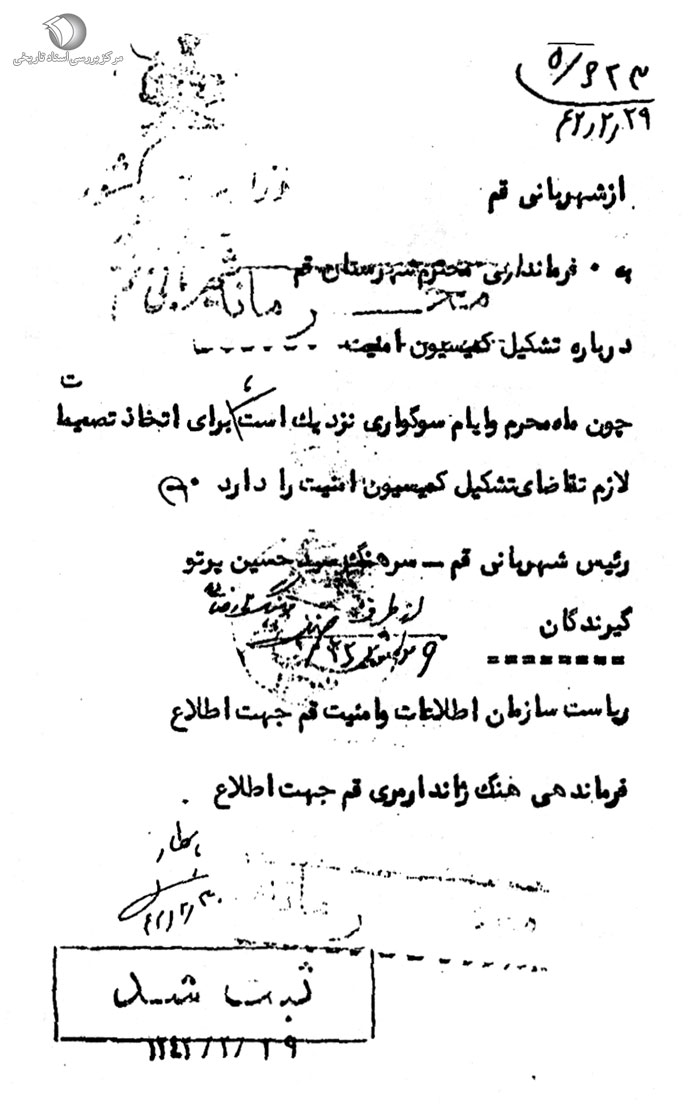 مرکز بررسی اسناد تاریخی
۵/۶۲۳
۴۲/۲/۲۹
از شهربانی قم
به ۰ فرمانداری محترم شهرستان قم
درباره تشکیل کمیسیون امنیت
چون ماه محرم و ایام سوگواری نزدیك است برای اتخاذ تصمیمات
لازم تقاضای تشکیل کمیسیون امنیت را دارد ۰
رئیس شهربانی قم ــ سرهنگ سید حسین پرتو
از طرف
گیرندگان
ریاست سازمان اطلاعات و امنیت قم جهت اطلاع
فرماندهی هنگ ژاندارمری قم جهت اطلاع
۴۲/۲/۳۰
ثبت شد
۱۳۴۲/۲/۲۹